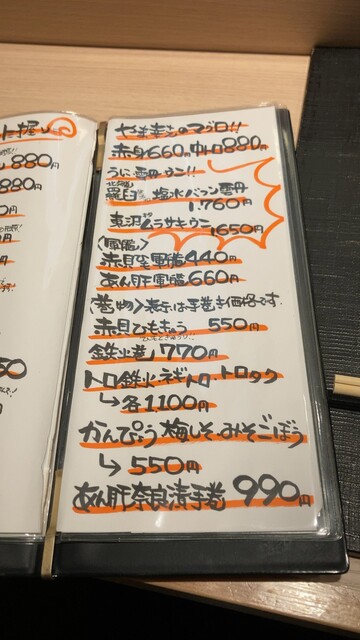 やま幸のマグロ!!
赤身660円 中トロ880円
うに・雲丹・ウニ!!
北海道
羅臼 塩水バフン雲丹
1,760円
東沢ムラサキウニ
1,650円
〈軍艦〉
赤貝肝軍艦440円
あん肝軍艦660円
〈巻物〉表示は手巻き価格です。
赤貝ひもきゅう 550円
鉄火巻 770円
トロ鉄火・ネギトロ・トロタク
↳各1,100円
かんぴょう 梅しそ・みそごぼう
↳550円
あん肝奈良漬手巻 990円
880円
880円